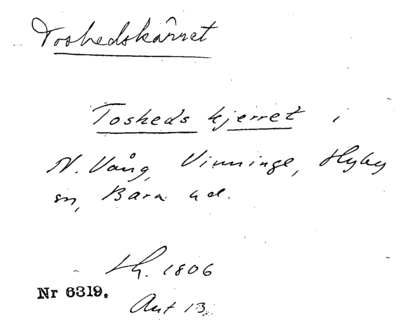 Toshedskärret
Tosheds kjerret i
N. Vång, Vinninge, Hyby
sn, Bara hd.
Lh. 1806
Nr 6319.
Akt 13.